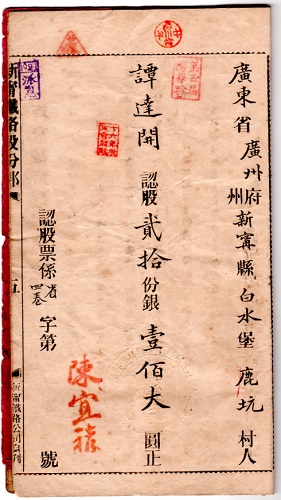 廣東省廣州府州新寧縣白水堡鹿坑村人
譚達開認股貳拾份銀壹佰大圓正
認股票係省四卷字第號
陳宜禧
新甯鐵路股分部
五
新甯鐵路公司自刊